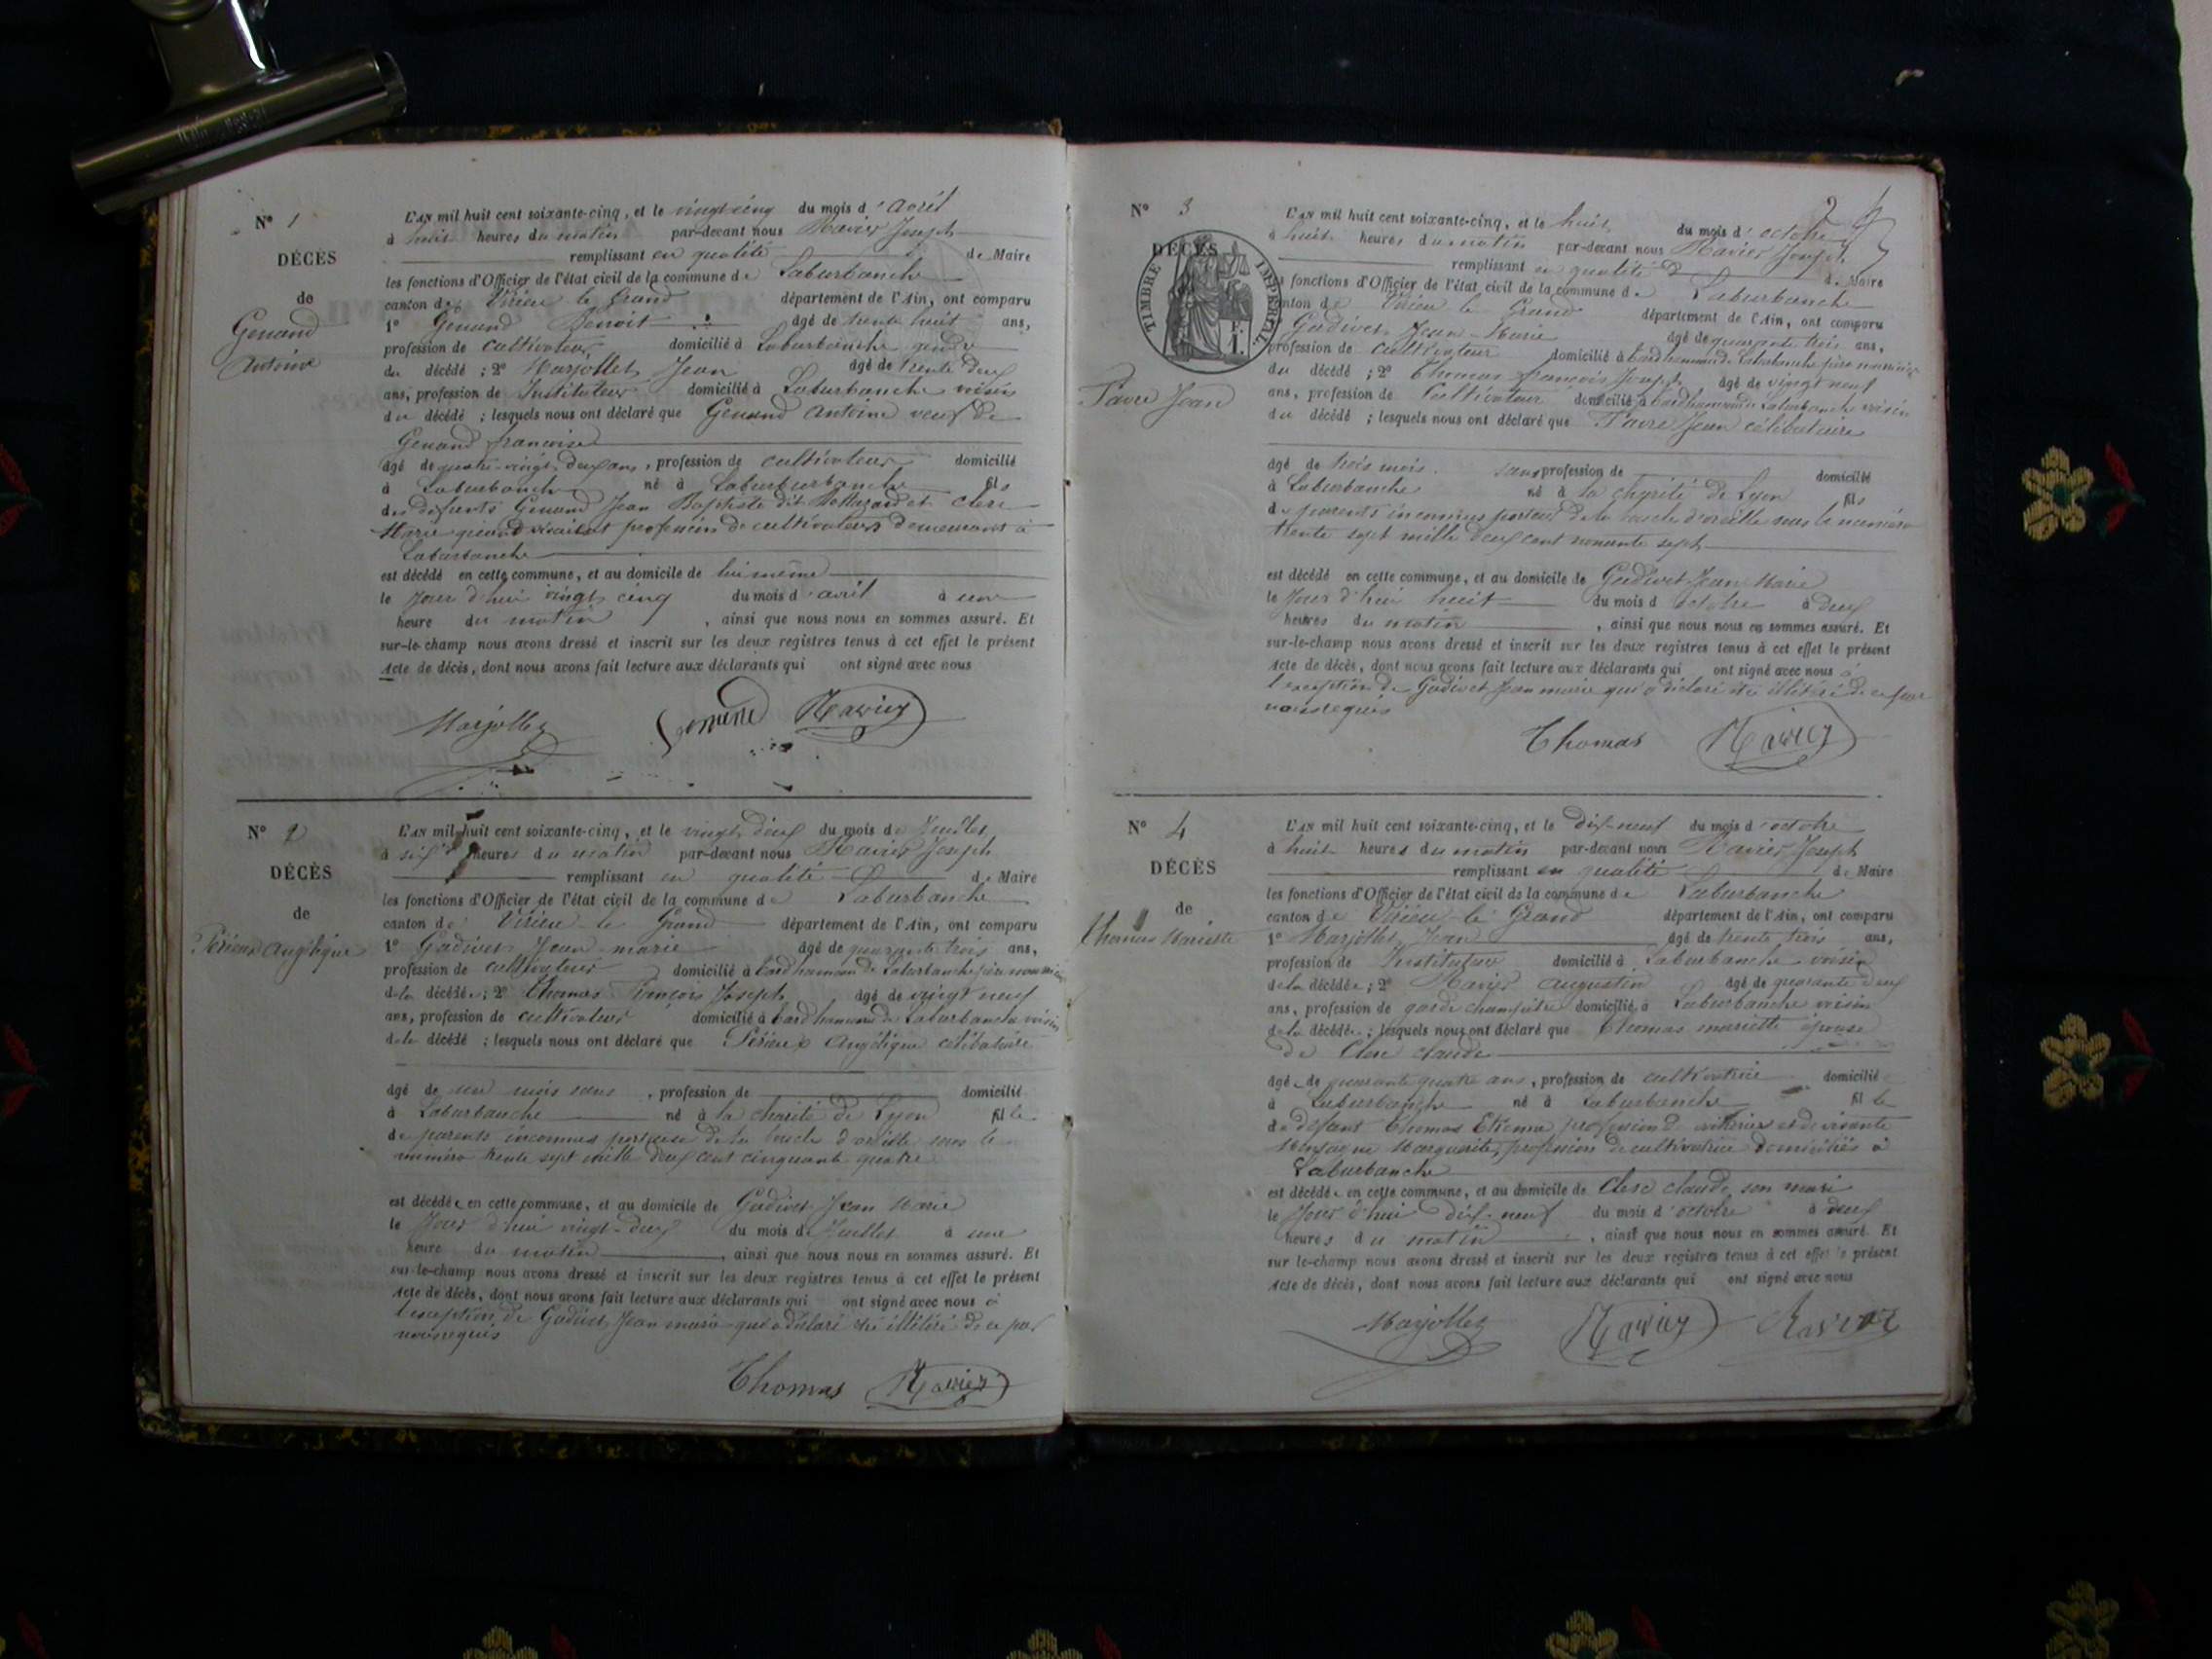 N° 1
DÉCÈS
de
Genand
Antoine
L'AN mil huit cent soixante-cinq, et le vingt cinq du mois d'avril
à huit heures du matin par-devant nous Ravier Joseph
remplissant en qualité de Maire
les fonctions d'Officier de l'état civil de la commune de Laburbanche
canton de Virieu le Grand département de l'Ain, ont comparu
1° Genand Benoit âgé de trente huit ans,
profession de cultivateur domicilié à Laburbanche gendre
du décédé ; 2° Marjollet Jean âgé de trente deux
ans, profession de Instituteur domicilié à Laburbanche voisin
du décédé ; lesquels nous ont déclaré que Genand Antoine veuf de
Genand françoise
âgé de quatre-vingt deux ans, profession de cultivateur domicilié
à Laburbanche né à Laburbanche fils
des défunts Genand Jean Baptiste dit et Clerc
Marie quand vivaient profession de cultivateurs demeurant à
Laburbanche
est décédé en cette commune, et au domicile de lui même
le jour d'hui vingt cinq du mois d'avril à une
heure du matin, ainsi que nous nous en sommes assuré. Et
sur-le-champ nous avons dressé et inscrit sur les deux registres tenus à cet effet le présent
Acte de décès, dont nous avons fait lecture aux déclarants qui ont signé avec nous
Marjollet Genand Ravier
N° 2
DÉCÈS
de
Périeux Angélique
L'AN mil huit cent soixante-cinq, et le vingt deux du mois de Juillet
à six heures du matin par-devant nous Ravier Joseph
remplissant en qualité de Maire
les fonctions d'Officier de l'état civil de la commune de Laburbanche
canton de Virieu le Grand département de l'Ain, ont comparu
1° Gudivet Jean marie âgé de quarante trois ans,
profession de cultivateur domicilié à bard hameau de Laburbanche père nourricier
de la décédée ; 2° Thomas François Joseph âgé de vingt neuf
ans, profession de cultivateur domicilié à bard hameau de Laburbanche voisin
de la décédé ; lesquels nous ont déclaré que Périeux Angélique célibataire
âgé de un mois sans, profession de domicilié
à Laburbanche né à la charité de Lyon fille
de parents inconnus porteuse de la boucle d'oreille sous le
numéro trente sept mille deux cent cinquante quatre
est décédée en cette commune, et au domicile de Gudivet Jean Marie
le jour d'hui vingt-deux du mois de Juillet à une
heure du matin, ainsi que nous nous en sommes assuré. Et
sur-le-champ nous avons dressé et inscrit sur les deux registres tenus à cet effet le présent
Acte de décès, dont nous avons fait lecture aux déclarants qui ont signé avec nous à
l'exception de Gudivet Jean marie qui a déclaré être illitéré de ce par
nous requis
Thomas Ravier
2
N° 3
DÉCÈS
TIMBRE IMPÉRIAL
Favre Jean
L'AN mil huit cent soixante-cinq, et le huit du mois d'octobre
à huit heures du matin par-devant nous Ravier Joseph
remplissant en qualité de Maire
les fonctions d'Officier de l'état civil de la commune de Laburbanche
canton de Virieu le Grand département de l'Ain, ont comparu
Gudivet Jean-Marie âgé de quarante trois ans,
profession de cultivateur domicilié à bard hameau de Laburbanche père nourricier
du décédé ; 2° Thomas françois Joseph, âgé de vingt neuf
ans, profession de Cultivateur domicilié à bard hameau de Laburbanche voisin
du décédé ; lesquels nous ont déclaré que Favre Jean célibataire
âgé de trois mois. sans profession de domicilié
à Laburbanche né à la charité de Lyon fils
de parents inconnus porteur de la boucle d'oreille sous le numéro
trente sept mille deux cent nonante sept
est décédé en cette commune, et au domicile de Gudivet Jean Marie
le jour d'hui huit du mois d octobre à deux
heures du matin, ainsi que nous nous en sommes assuré. Et
sur-le-champ nous avons dressé et inscrit sur les deux registres tenus à cet effet le présent
Acte de décès, dont nous avons fait lecture aux déclarants qui ont signé avec nous à
l'exception de Gudivet Jean marie qui a déclaré être illitéré de ce par
nous requis
Thomas Ravier
N° 4
DÉCÈS
de
Thomas Mariette
L'AN mil huit cent soixante-cinq, et le dix-neuf du mois d'octobre
à huit heures du matin par-devant nous Ravier Joseph
remplissant en qualité de Maire
les fonctions d'Officier de l'état civil de la commune de Laburbanche
canton de Virieu le Grand département de l'Ain, ont comparu
1° Marjollet Jean âgé de trente trois ans,
profession de Instituteur domicilié à Laburbanche voisin
de la décédée ; 2° Ravier Augustin âgé de quarante deux
ans, profession de garde champêtre domicilié à Laburbanche voisin
de la décédée ; lesquels nous ont déclaré que Thomas mariette épouse
de Clerc claude
âgée de quarante quatre ans, profession de cultivatrice domicilié
à Laburbanche né à Laburbanche fille
de défunt Thomas Etienne profession de et de vivante
Marguerite, profession de cultivatrice domiciliés à
Laburbanche
est décédée en cette commune, et au domicile de Clerc claude son mari
le jour d'hui dix-neuf du mois d'octobre à deux
heures du matin, ainsi que nous nous en sommes assuré. Et
sur le-champ nous avons dressé et inscrit sur les deux registres tenus à cet effet le présent
Acte de décès, dont nous avons fait lecture aux déclarants qui ont signé avec nous
Marjollet Ravier Ravier